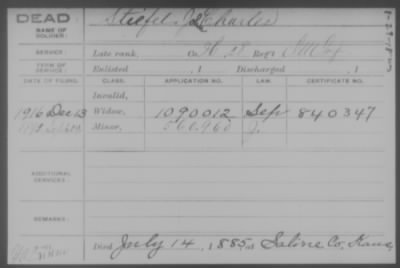 DEAD
NAME OF SOLDIER:
Stiefel, J. Charles
SERVICE:
Late rank, Co. H, 58 Reg't
TERM OF SERVICE:
Enlisted , 1 Discharged , 1
DATE OF FILING. CLASS. APPLICATION NO. LAW. CERTIFICATE NO.
Invalid,
1916 Dec 13 Widow, 1090012 Sep 840347
Minor, 560.960
ADDITIONAL SERVICES:
REMARKS:
Died July 14, 1885, at Saline Co, Kans,